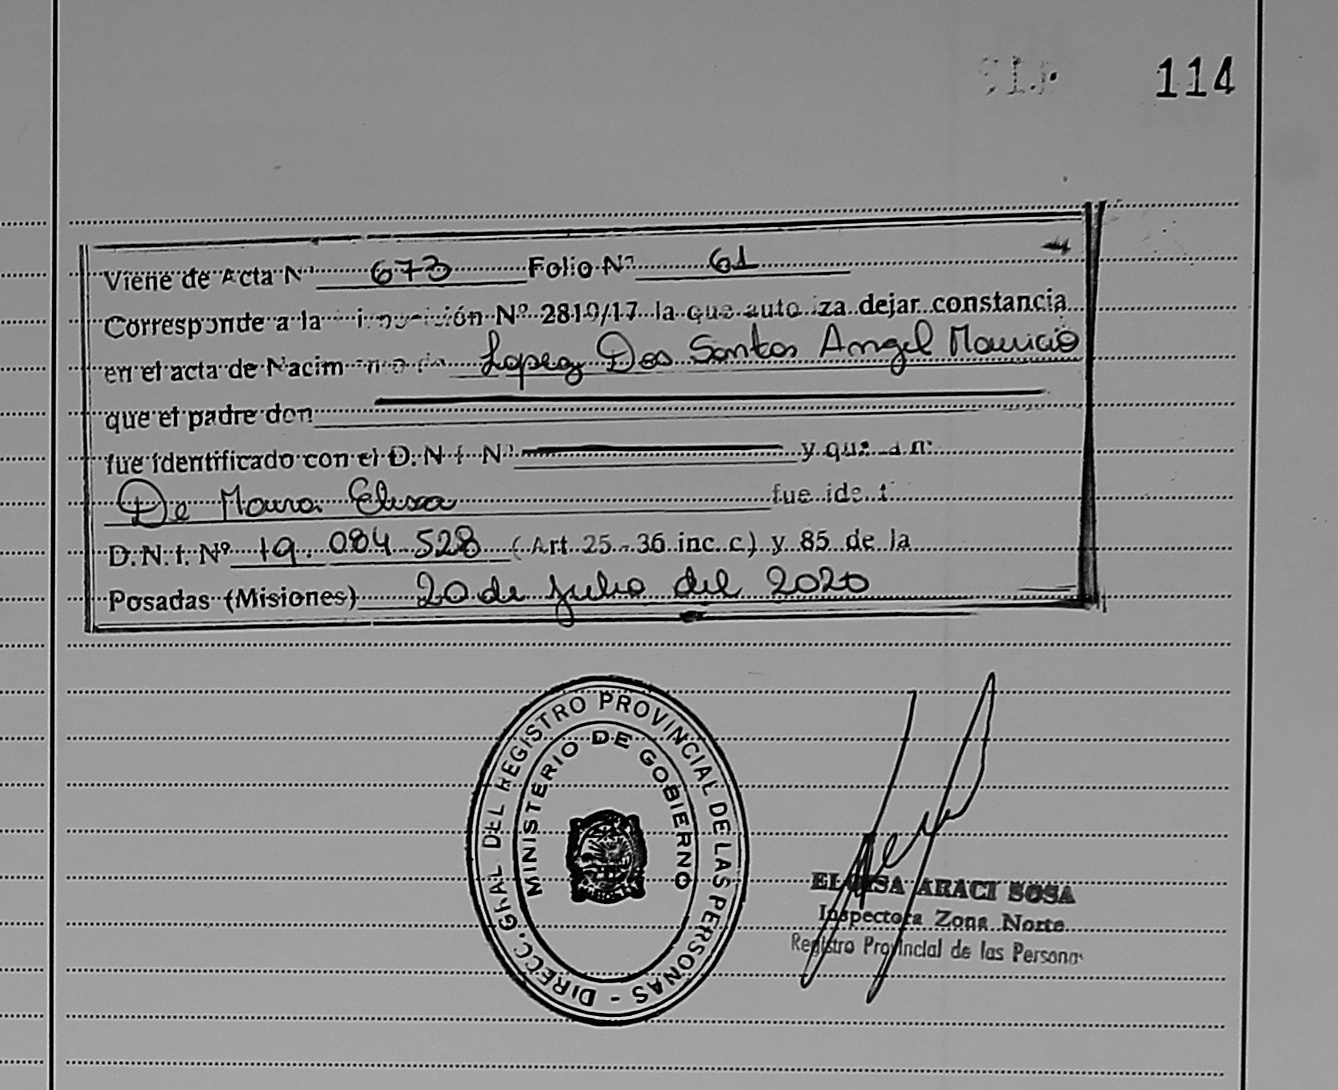 114
Viene de Acta Nº 673 Folio Nº 61
Corresponde a la Nº 2810/17 la que autoriza dejar constancia
en el acta de Nacim Lopez Dos Santos Angel Mauricio
que el padre don
fue identificado con el D.N.I. Nº y que
De Moura Elisa fue ident
D.N.I. Nº 19.084.528 (Art. 25 - 36 inc. c) y 85 de la
Posadas (Misiones) 20 de Julio del 2020
DIRECC. GRAL DEL REGISTRO PROVINCIAL DE LAS PERSONAS -
MINISTERIO DE GOBIERNO
ELOISA ARACI SOSA
Inspectora Zona Norte
Registro Provincial de las Persona